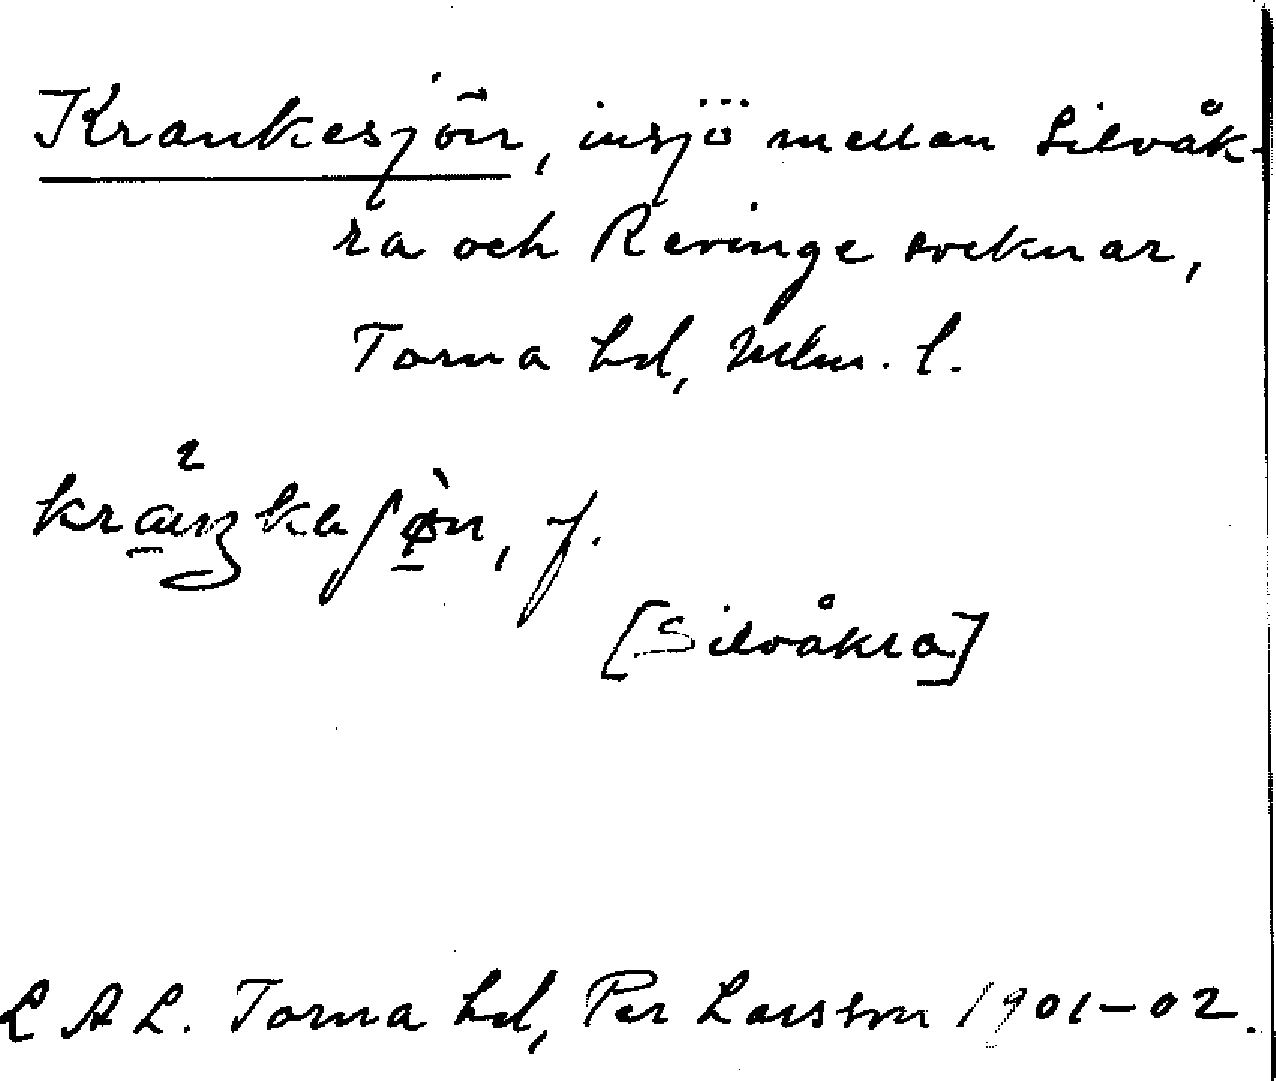 Krankesjön, insjö mellan Silvåk-
ra och Revinge socknar,
Torna hd, Mlm. l.
f.
[Silvåkra]
L A L. Torna hd, Per Larsson 1901-02.